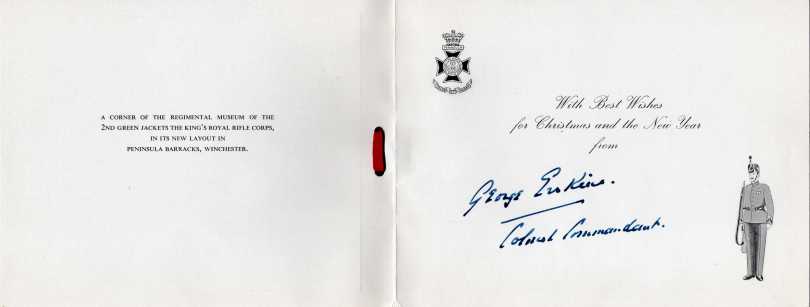 A CORNER OF THE REGIMENTAL MUSEUM OF THE
2ND GREEN JACKETS THE KING'S ROYAL RIFLE CORPS,
IN ITS NEW LAYOUT IN
PENINSULA BARRACKS, WINCHESTER.
With Best Wishes
for Christmas and the New Year
from
George Erskine.
Colonel Commandant.